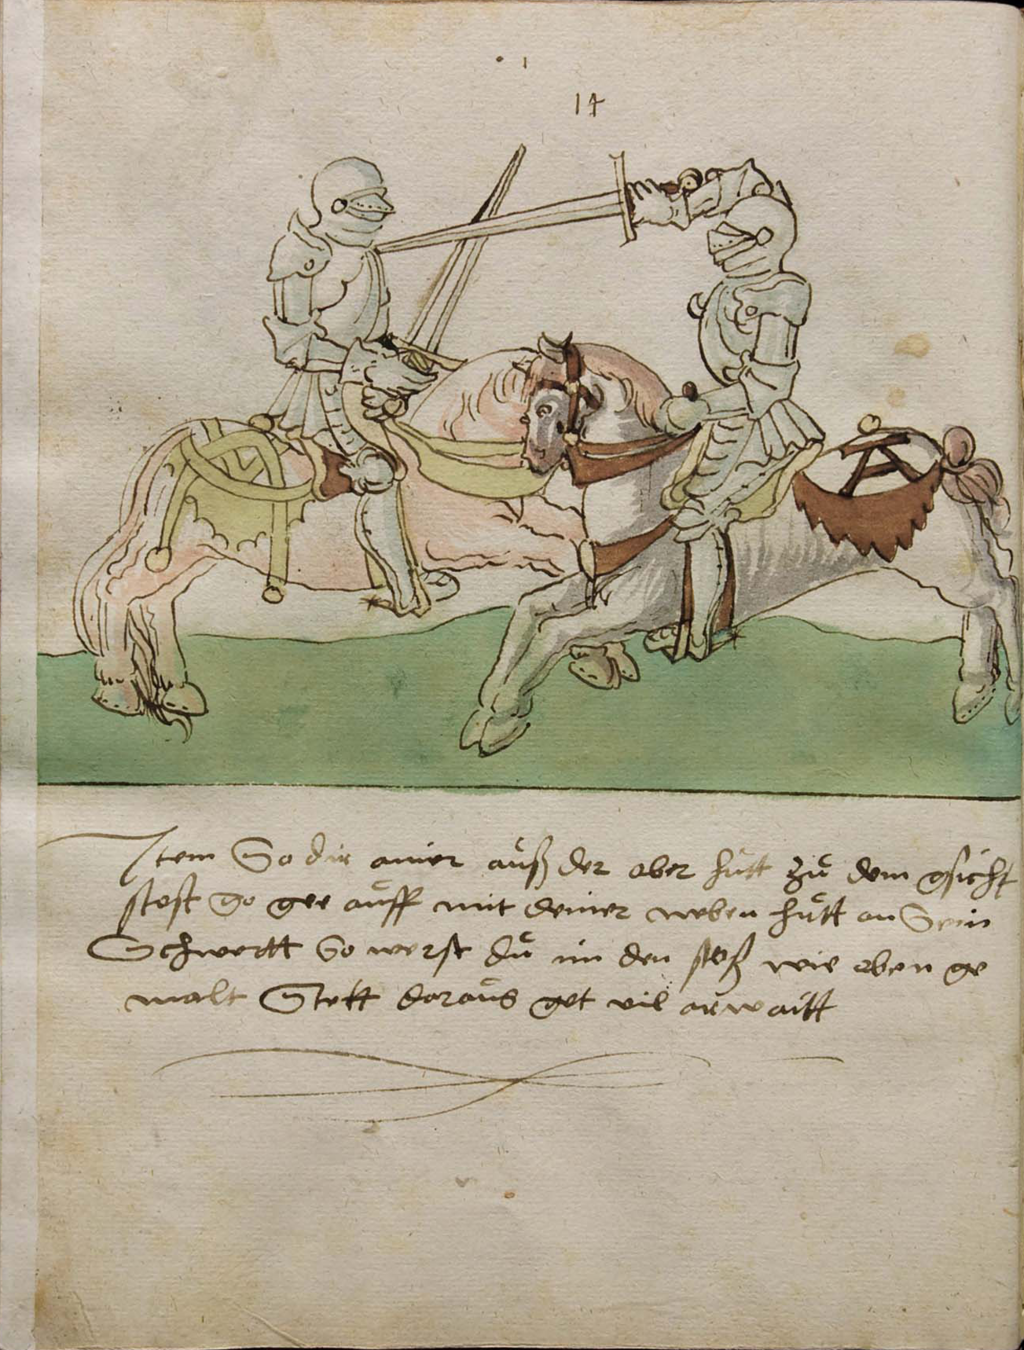 14
Item So dir ainer auß der ober hůtt zů dem gsicht
stost so gee aůff mit deiner neben hůtt an Sein
Schwertt So werst dů im den stoß wie oben ge
malt Stett daraůs get vil arwaitt